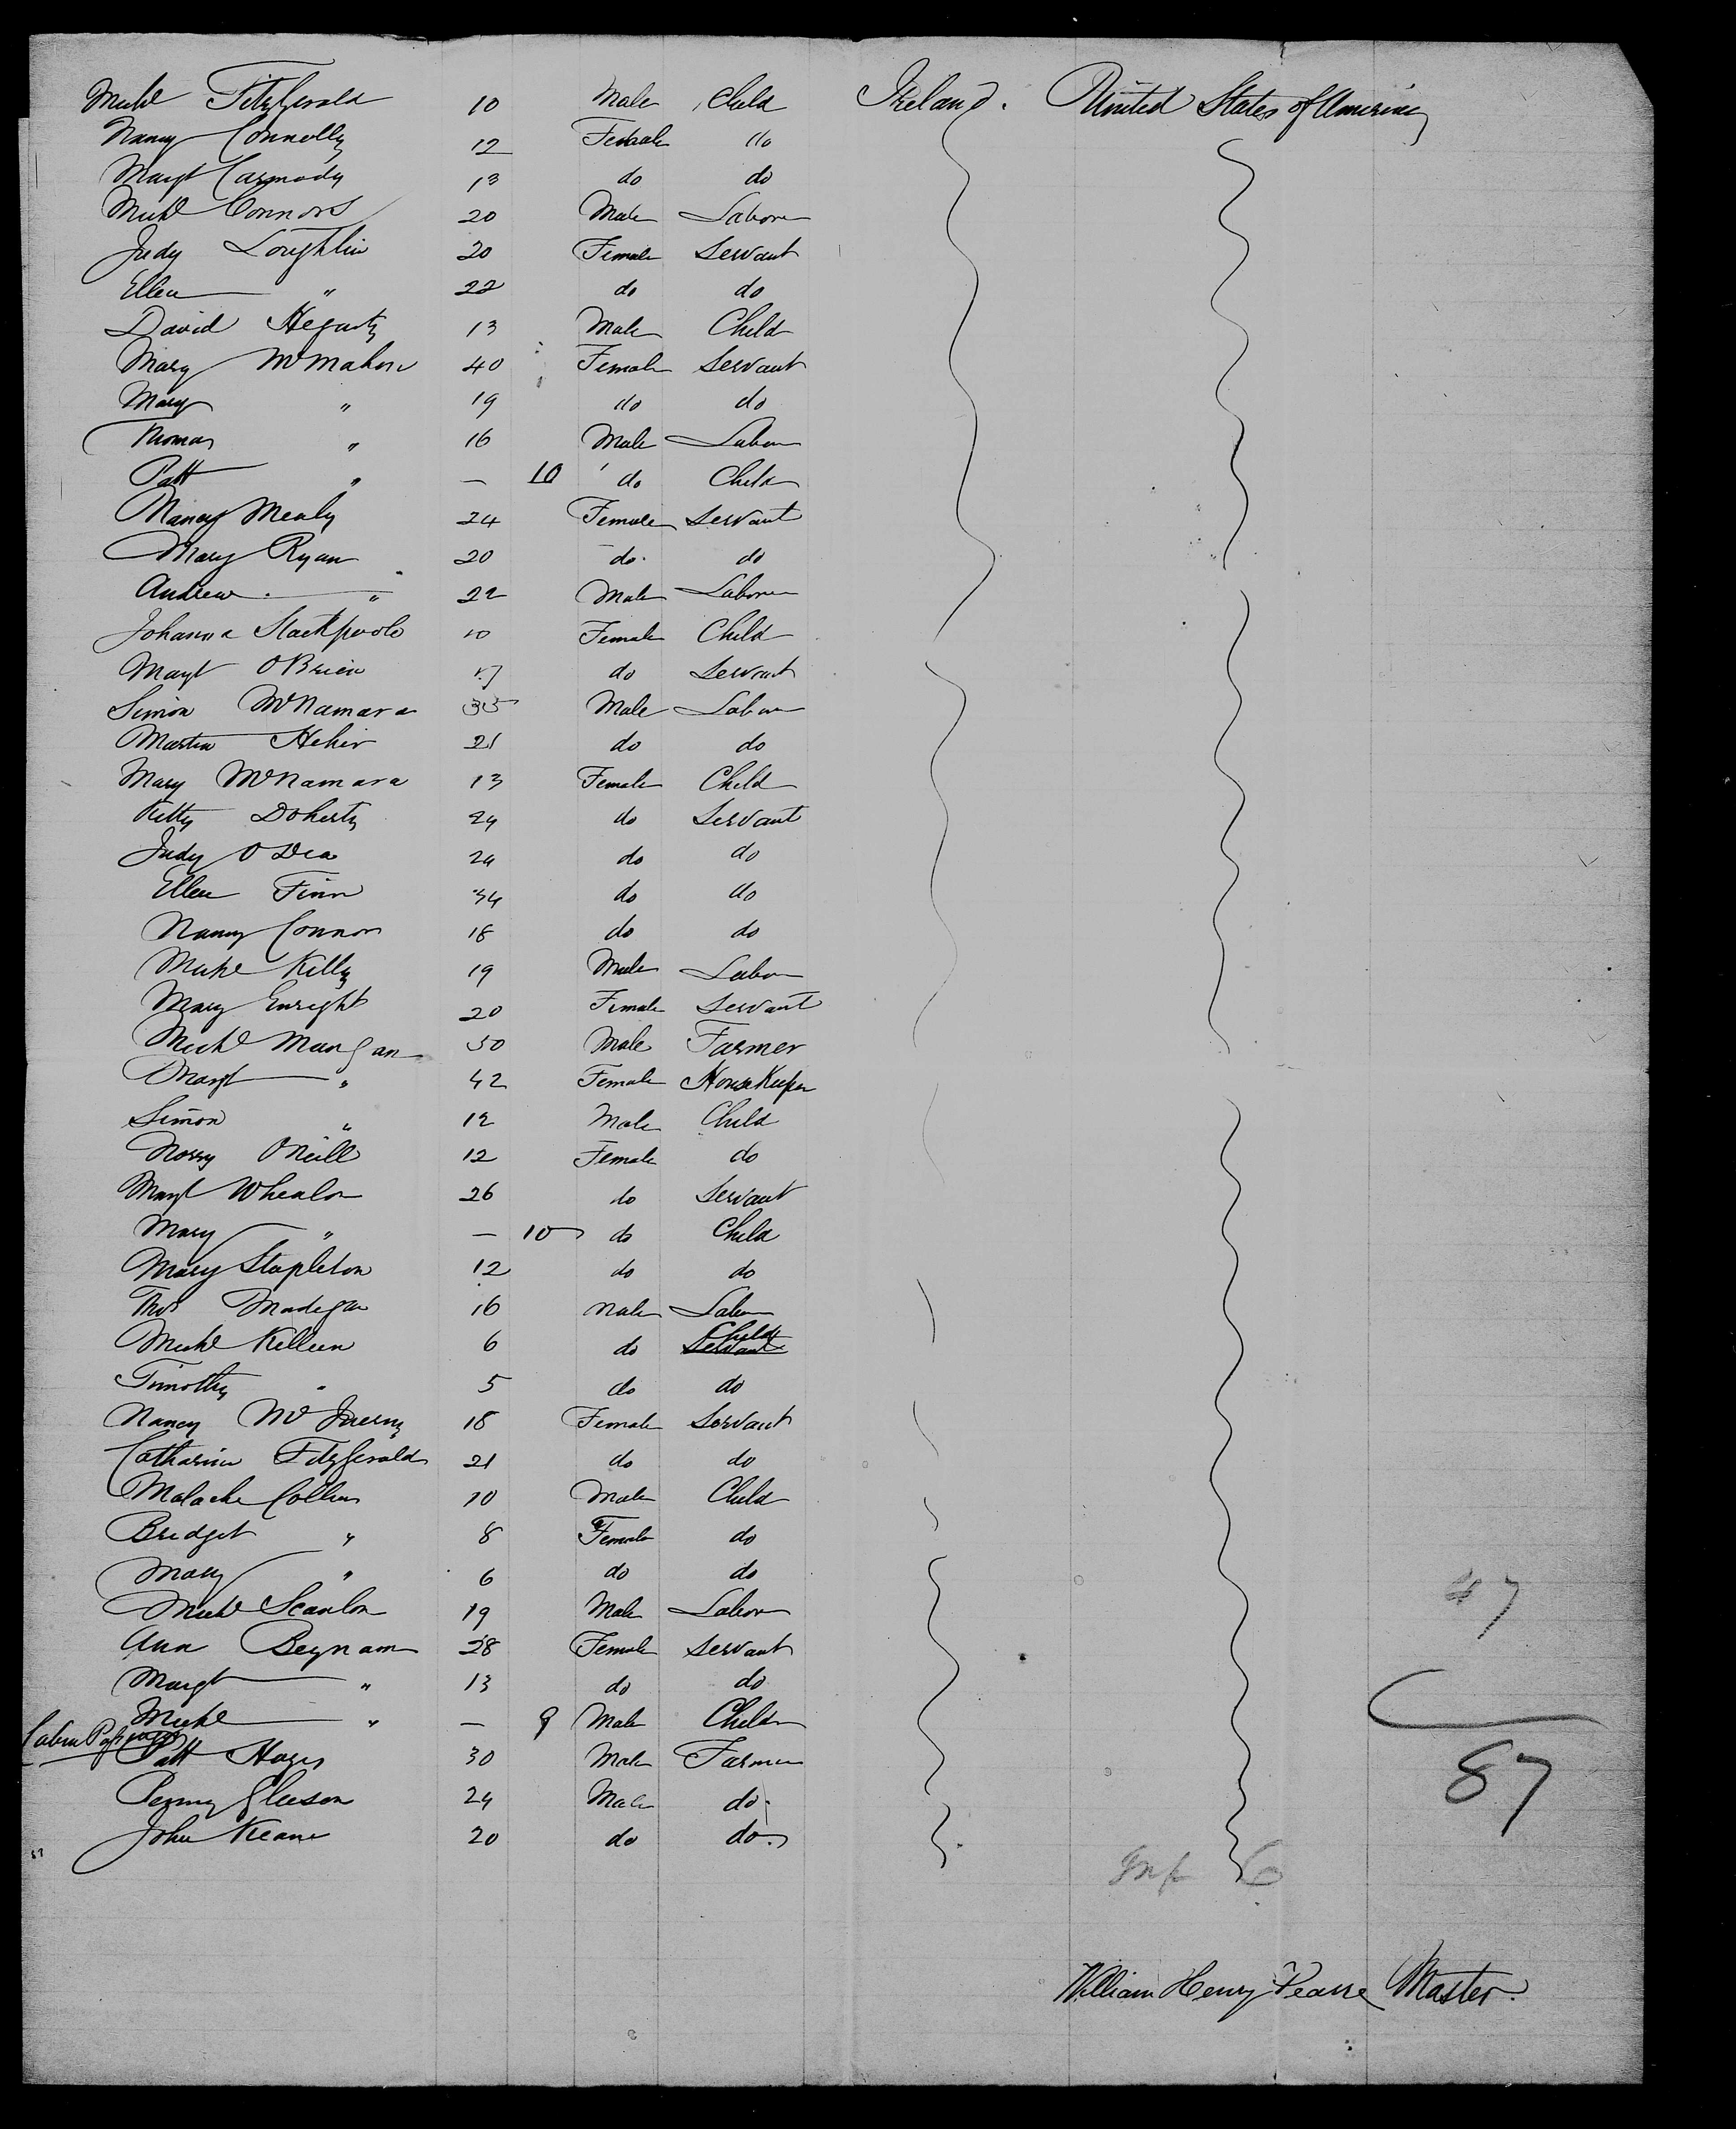 Michl FitzGerald 10 Male Child Ireland. United States of America
Nancy Connolly 12 Female do
Margt Carmody 13 do do
Michl Connors 20 Male Labour
Judy Loughlin 20 Female Servant
Ellen " 22 do do
David Hegarty 13 Male Child
Mary McMahon 40 Female Servant
Mary " 19 do do
Thomas " 16 Male Labour
Patt " — 10 do Child
Nancy Mealy 24 Female Servant
Mary Ryan 20 do. do
Andrew " 22 Male Labour
Johanna Stackpoole 10 Female Child
Margt OBrien 17 do Servant
Simon McNamara 35 Male Labour
Martin Hehir 21 do do
Mary McNamara 13 Female Child
Kitty Doherty 24 do Servant
Judy ODea 24 do do
Ellen Finn 34 do do
Nancy Connors 18 do do
Michl Kelly 19 Male Labour
Mary Enright 20 Female Servant
Michl Mangan 50 Male Farmer
Margt " 42 Female HouseKeeper
Simon " 12 Male Child
Norry ONeill 12 Female do
Margt Whealon 26 do Servant
Mary " — 10 do Child
Mary Stapleton 12 do do
Thos Madigan 16 Male Labour
Michl Killeen 6 do Child Servant
Timothy " 5 do do
Nancy McInerny 18 Female Servant
Catharine FitzGerald 21 do do
Malachi Collins 10 Male Child
Bridget " 8 Female do
Mary " 6 do do
Michl Scanlon 19 Male Labour
Ann Beynam 28 Female Servant
Margt " 13 do do
Michl " — 9 Male Child
Cabin Passengers
Patt Hayes 30 Male Farmer
Penny Gleeson 24 Male do.
John Keane 20 do do.
47
87
Inf 6
William Henry Pearse Master.